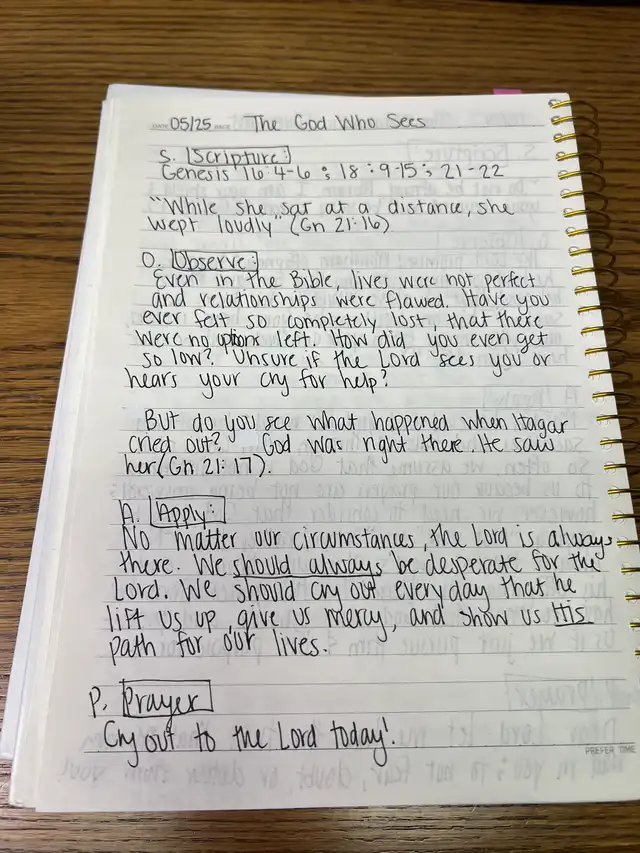 DATE 05/25 PAGE The God Who Sees
S. Scripture:
Genesis 16:4-6; 18:9-15; 21-22
"While she sat at a distance, she
wept loudly" (Gn 21:16)
O. Observe:
Even in the Bible, lives were not perfect
and relationships were flawed. Have you
ever felt so completely lost, that there
were no options left. How did you even get
so low? Unsure if the Lord sees you or
hears your cry for help?
But do you see what happened when Hagar
cried out? God was right there. He saw
her (Gn 21:17).
A. Apply:
No matter our circumstances, the Lord is always
there. We should always be desperate for the
Lord. We should cry out everyday that he
lift us up, give us mercy, and show us His
path for our lives.
P. Prayer
Cry out to the Lord today!
PREFER TIME